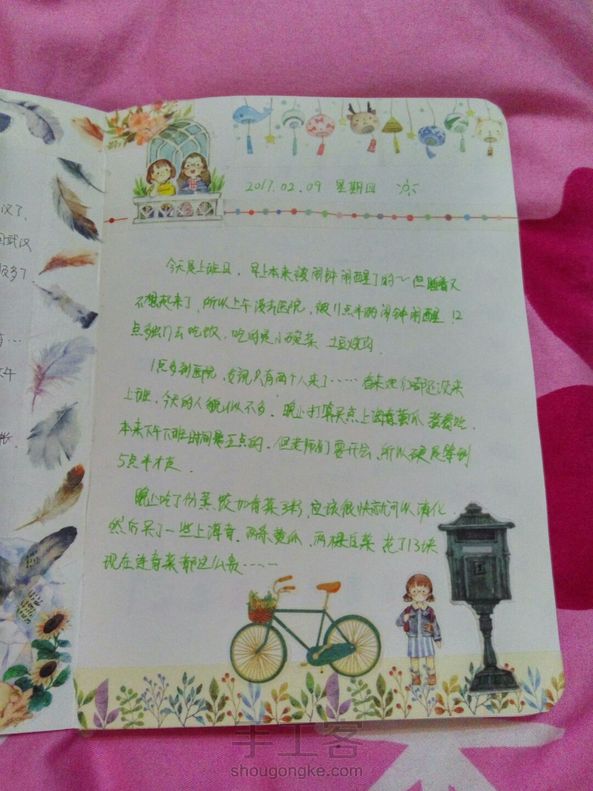 汉了
回武汉
2017.02.09 星期日
今天是上班日，早上本来被闹钟闹醒了的～但随着又
不想起来了，所以上午没去医院，被11点半的闹钟闹醒，12
点多我们去吃饭，吃的是小碗菜 土豆烧肉
1点多到医院，发现只有两个人来了……看来他们都还没来
上班，今天的人貌似不多。晚上打算买点上海青黄瓜
本来下午下班时间是五点的，但老师们要开会，所以硬是等到
5点半才走
晚上吃了份蒸饺加青菜粥，应该很快就可以消化
然后买了一些上海青、两条黄瓜、两棵白菜 花了13块
现在连青菜都这么贵……
手工客
shougongke.com